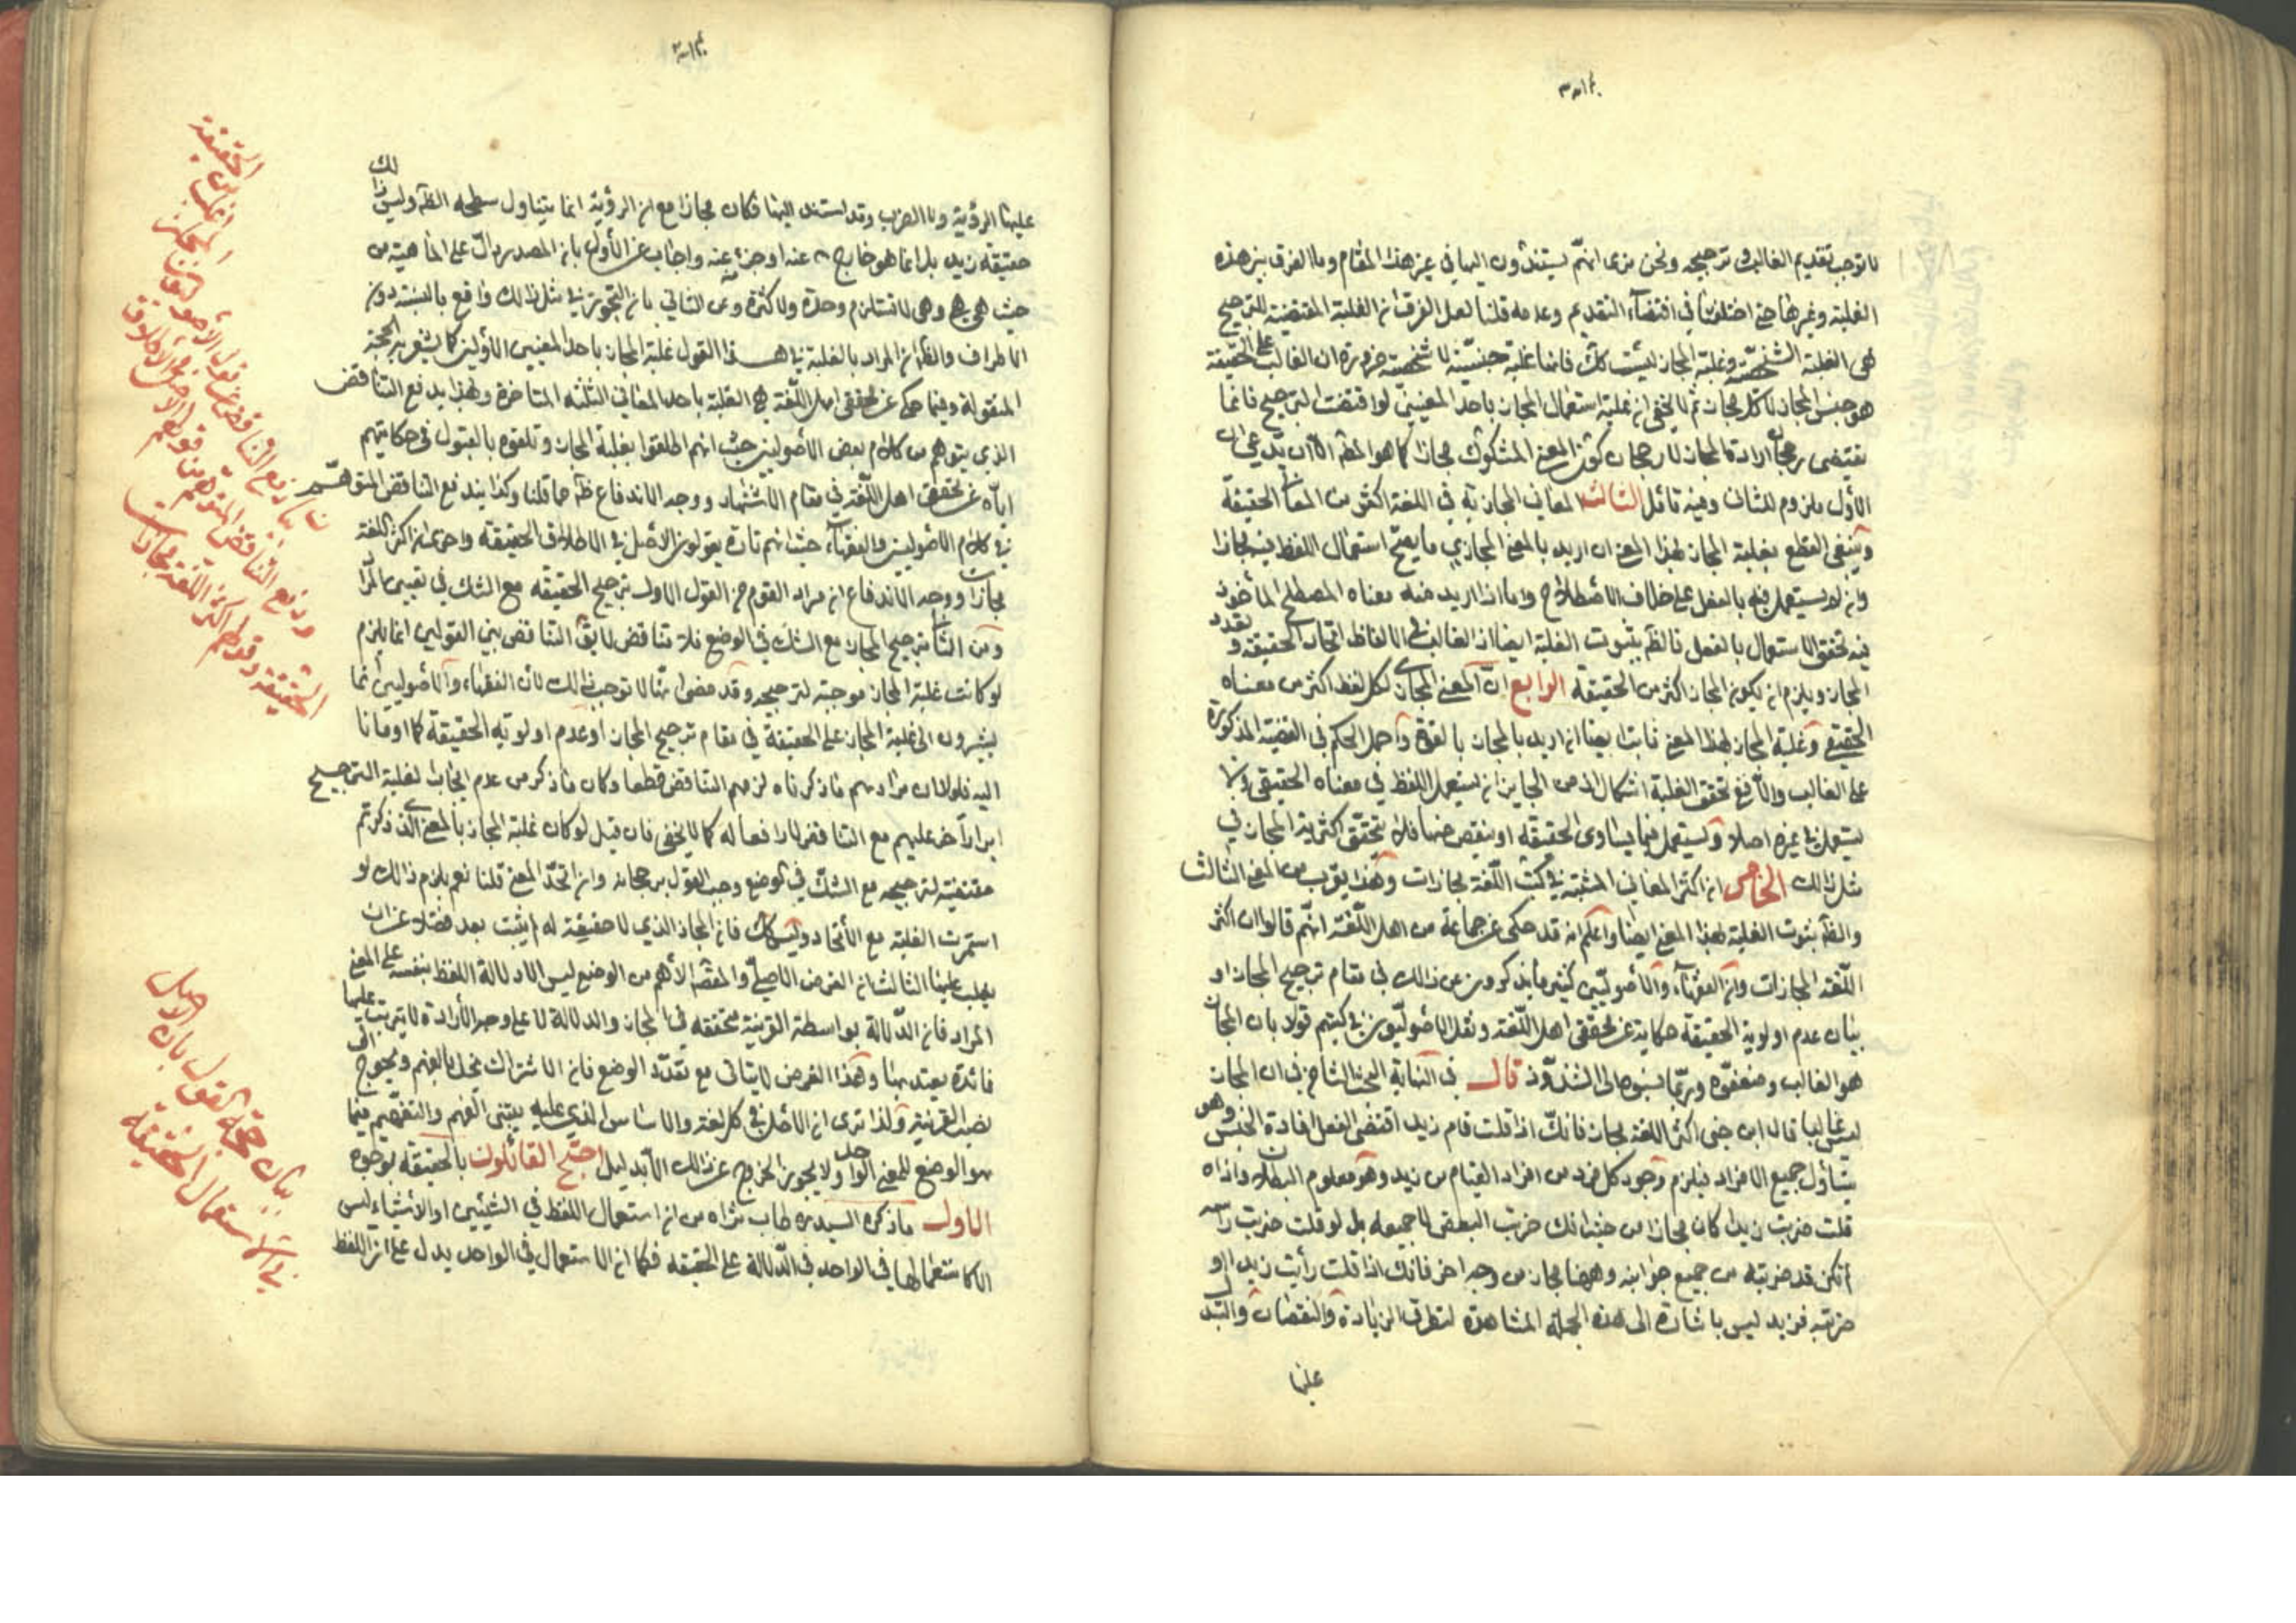 لا توجب تقديم الغالب و ترجيحه ونحن نرى انهم يستندون اليها في غير هذا المقام وما الفرق بين هذه
الغلبة وغيرها حتى اختلفتا في اقتضاء التقديم وعدمه قلنا لعل الفرق ان الغلبة المقتضية للترجيح
هى الغلبة الشخصيّة وغلبة المجاز ليست كك فانها غلبة جنسيّة لا شخصية ضرورة ان الغالب على الحقيقة
هو جنس المجاز لا كل مجاز ثم لا يخفى ان غلبة استعمال المجاز باحد المعنيين لو اقتضت الترجيح فانما
يقتضى رجحان ارادة المجاز لا رجحان كون المعنى المشكوك مجازا كما هو المط الا ان يدعى ان
الأول ملزوم للثانى وفيه تامل الثالث المعاني المجازية في اللغة اكثر من المعاني الحقيقة
وينبغى القطع بغلبة المجاز بهذا المعنى ان اريد بالمعنى المجازي ما يصح استعمال اللفظ فيه مجازا
وان لم يستعمل فيه بالفعل على خلاف الاصطلاح واما اذا اريد منه معناه المصطلح المأخوذ
فيه تحقق الاستعمال بالفعل فالظ ثبوت الغلبة ايضا اذ الغالب في الالفاظ اتحاد الحقيقة و تعدد
المجاز ويلزم ان يكون المجاز اكثر من الحقيقة الرابع ان المعنى المجازى لكل لفظ اكثر من معناه
الحقيقى وغلبة المجاز بهذا المعنى ثابت ايضا ان اريد بالمجاز بالقوة و حمل الحكم في القضية المذكورة
على الغالب والا فع تحقق الغلبة اشكال اذ من الجايز ان يستعمل اللفظ في معناه الحقيقى ولا
يستعمل في غيره اصلا او يستعمل فيما يساوى الحقيقة او ينقص عنها فلا يتحقق اكثرية المجاز في
مثل ذلك الخامس ان اكثر المعاني المثبتة في كتب اللغة مجازات وهذا يقرب من المعنى الثالث
والظ ثبوت الغلبة بهذا المعنى ايضا واعلم انه قد حكى عن جماعة من اهل اللغة انهم قالوا ان اكثر
اللغة المجازات وان الفقهاء والأصوليين كثيرا ما يذكرون ذلك في مقام ترجيح المجاز او
بيان عدم اولوية الحقيقة حكاية عن محققى اهل اللغة ونقل الاصوليون في كتبهم قولا بان المجاز
هو الغالب وضعفوه وربما نسبوه الى الشذوذ قال في النهاية البحث الثامن في ان المجاز
ليس غالبا قال ابن جنى اكثر اللغة مجاز فانك اذا قلت قام زيد اقتضى الفعل افادة الجنس وهو
يتناول جميع الافراد فيلزم وجود كل فرد من افراد القيام من زيد وهو معلوم البطلان واذا
قلت ضربت زيدا كان مجازا من حيث انك ضربت البعض لا جميعه بل لو قلت ضربت راسه
لم تكن قد ضربته من جميع جوانبه وههنا مجاز من وجه اخر فانك اذا قلت رأيت زيدا او
ضربته فزيد ليس باشارة الى هذه الجملة المشاهدة لتطرق الزيادة والنقصان والتبدل
عليها
عليها الرؤية ولا الضرب وقد استند اليها فكان مجازا مع ان الرؤية انما يتناول سطحه الظ وليس ذلك
حقيقة زيد بل انما هو خارج عنه او جزء عنه واجاب عن الأول بان المصدر دال على الماهية من
حيث هى هى وهى لا تستلزم وحدة ولا كثرة وعن الثاني بان التجويز في مثل ذلك واقع بالنسبة دون
الاطراف والظ ان المراد بالغلبة في هذا القول غلبة المجاز باحد المعنيين الاولين كما يشعر به الحجة
المنقولة وفيما حكى عن محققى اهل اللغة هى الغلبة باحد المعاني الثلثة المتاخرة وبهذا يدفع التناقض
الذي يتوهم من كلام بعض الاصوليين حيث انهم اطلقوا بغلبة المجاز و تلقوه بالقبول في حكايتهم
اياه عن محققى اهل اللغة في مقام الاستشهاد ووجه الاندفاع ظ مما قلنا وكذا يندفع التناقض المتوهم
في كلام الأصوليين والفقهاء حيث انهم تارة يقولون الاصل في الاطلاق الحقيقة واخرى ان اكثر اللغة
مجازات ووجه الاندفاع ان مراد القوم من القول الاول ترجيح الحقيقة مع الشك في تعيين المراد
ومن الثاني ترجيح المجاز مع الشك في الوضع فلا تناقض لا يق التناقض بين القولين انما يلزم
لو كانت غلبة المجاز موجبة لترجيحه وقد مضى انها لا توجب ذلك لأن الفقهاء والأصوليين انما
يشيرون الى غلبة المجاز على الحقيقة في مقام ترجيح المجاز او عدم اولوية الحقيقة كما اومأنا
اليه فلولا ان مرادهم ما ذكرناه لزمهم التناقض قطعا وكان ما ذكر من عدم ايجاب الغلبة الترجيح
ايرادا اخر عليهم مع التناقض لا رافعا له كما لا يخفى فان قيل لو كان غلبة المجاز بالمعنى الذى ذكرتم
مقتضية لترجيحه مع الشك في الوضع وجب القول برجحانه وان اتحد المعنى قلنا نعم يلزم ذلك لو
استمرت الغلبة مع الأتحاد وليس كك فان المجاز الذي لا حقيقة له لم يثبت بعد فضلا عن ان
يغلب علينا الثالث ان الغرض الاصلى والمقصد الأهم من الوضع ليس الا دلالة اللفظ بنفسه على المعنى
المراد فان الدلالة بواسطة القرينة متحققة في المجاز والدلالة لا على وجه الأرادة لا يترتب عليها
فائدة يعتد بها وهذا الغرض لا يتاتى مع تعدد الوضع فان الاشتراك مخل بالفهم ويحوج الى
نصب القرينة ولذا ترى ان الاصل في كل لغة والاساس الذي عليه يبتنى الفهم والتفهيم فيها
هو الوضع للمعنى الواحد ولا يجوز الخروج عن ذلك الا بدليل احتج القائلون بالحقيقة بوجوه
الاول ما ذكره السيد ره طاب ثراه من ان استعمال اللفظ في الشيئين او الاشياء ليس
الا كاستعمالها في الواحد في الدلالة على الحقيقة فكما ان الاستعمال في الواحد يدل على ان اللفظ
بيان رفع التناقض عن قول الأصوليين
الحقيقة
ودفع التناقض المتوهم من قولهم الاصل في الاطلاق
الحقيقة وقولهم اكثر اللغة مجازات
بيان حجة القول بان الاصل
في الاستعمال الحقيقة